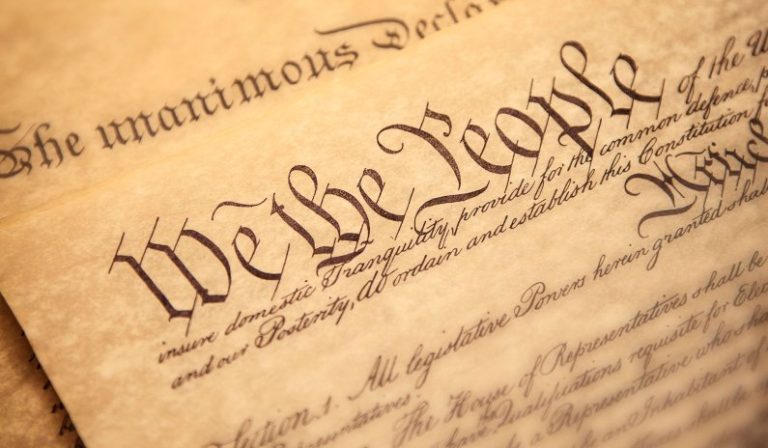 The unanimous Decla
We the People of the U
insure domestic Tranquility, provide for the common defence, p
and our Posterity, do ordain and establish this Constitution f
Articl
Section 1. All legislative Powers herein granted shall
Representatives.
The House of Representatives shall be
have Qualifications requisite for Elec
a Representative who sha
an Inhabitant of